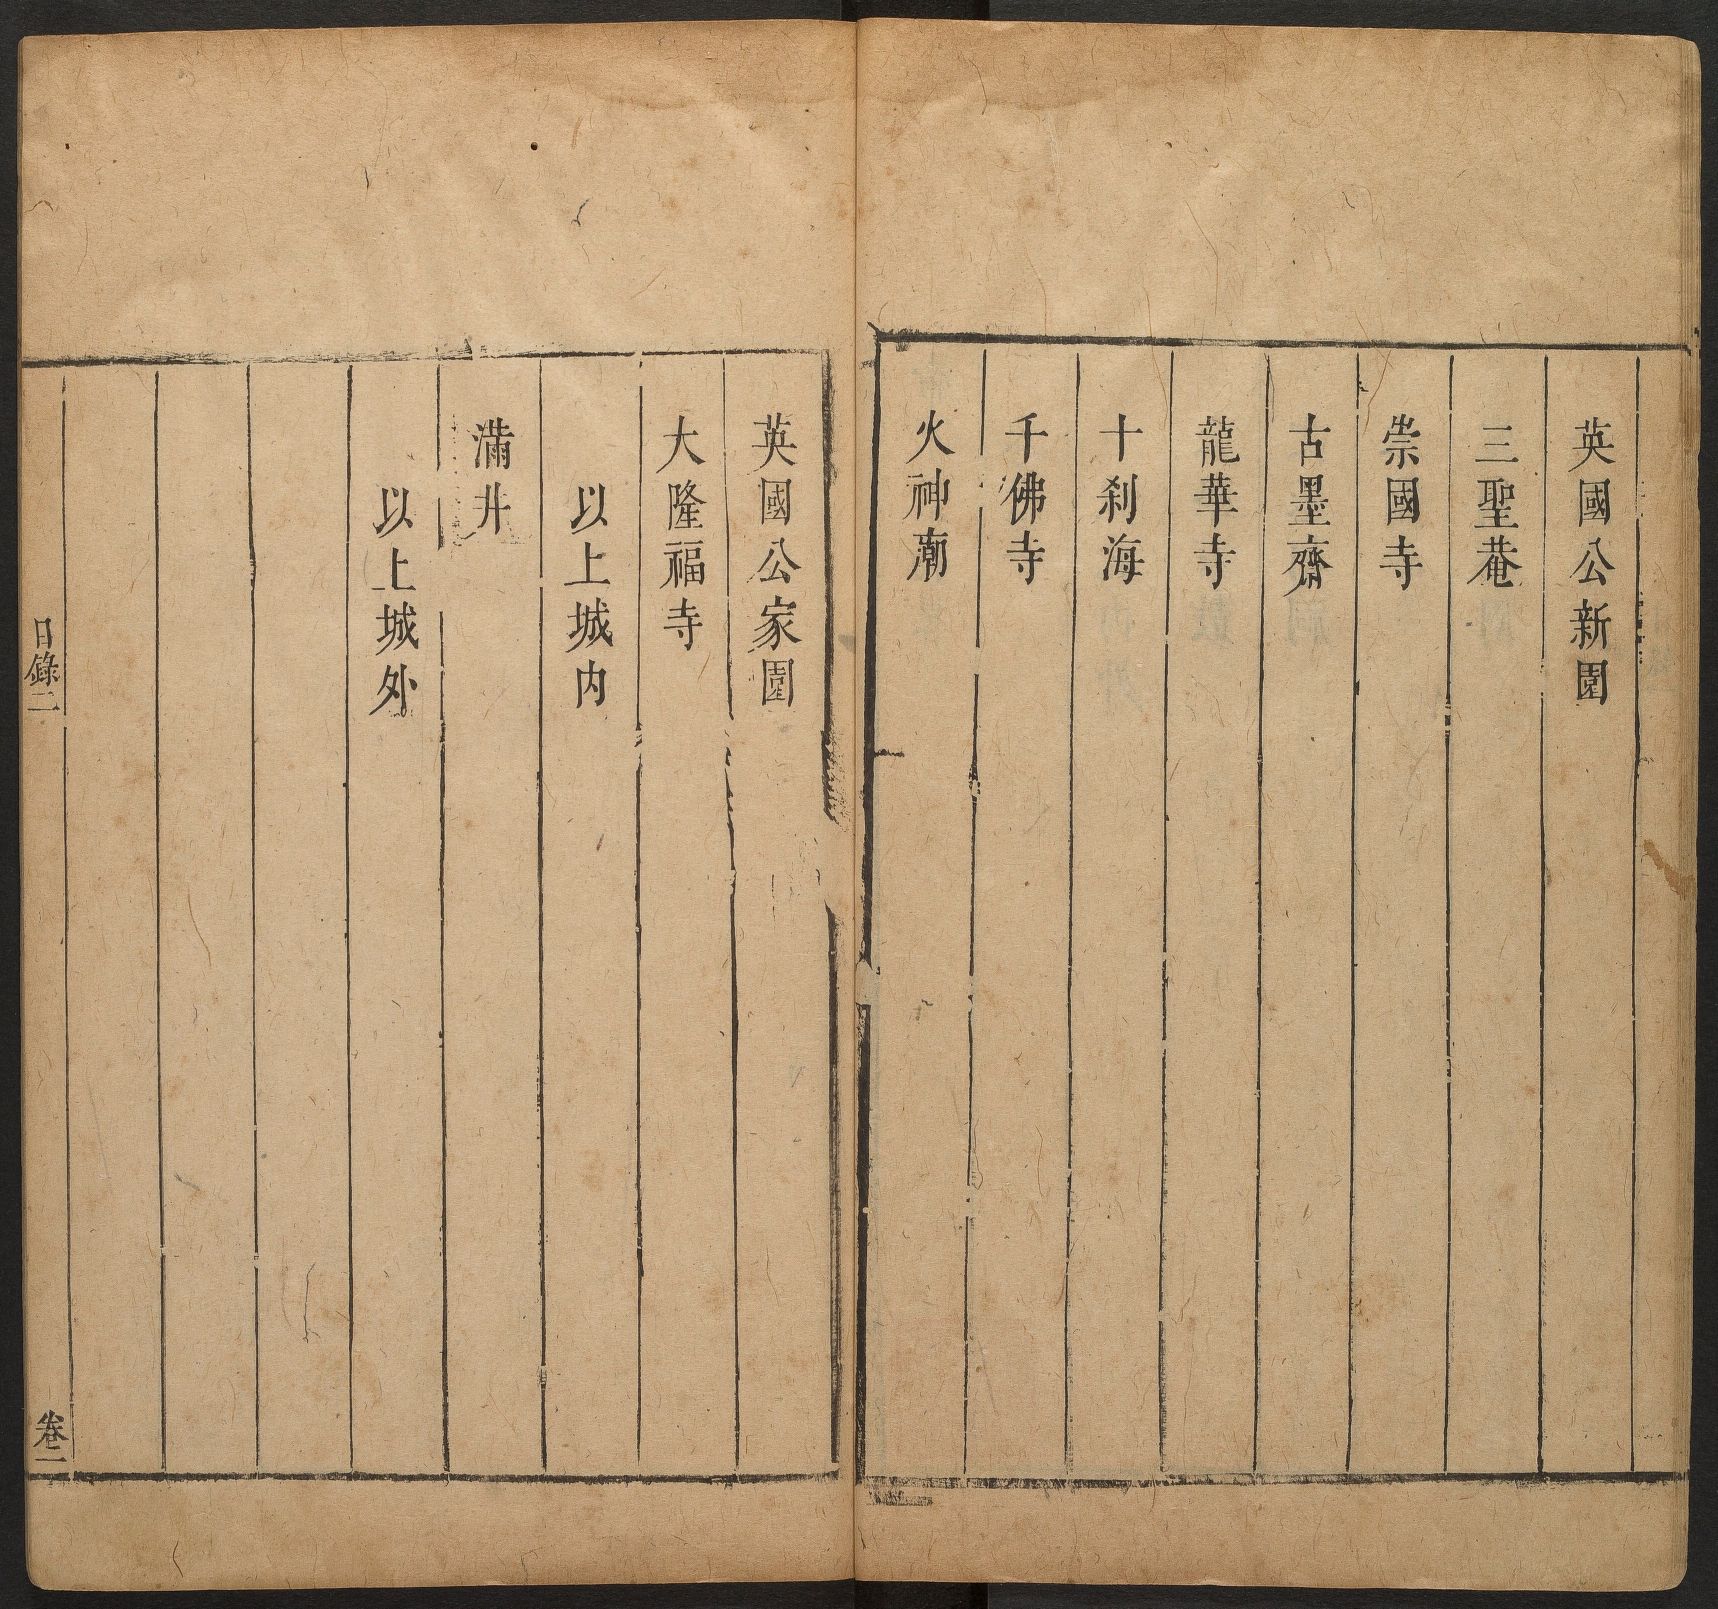 英國公新園
三聖菴
崇國寺
古墨齋
龍華寺
十刹海
千佛寺
火神廟
英國公家園
大隆福寺
以上城内
滿井
以上城外
目錄二
卷一